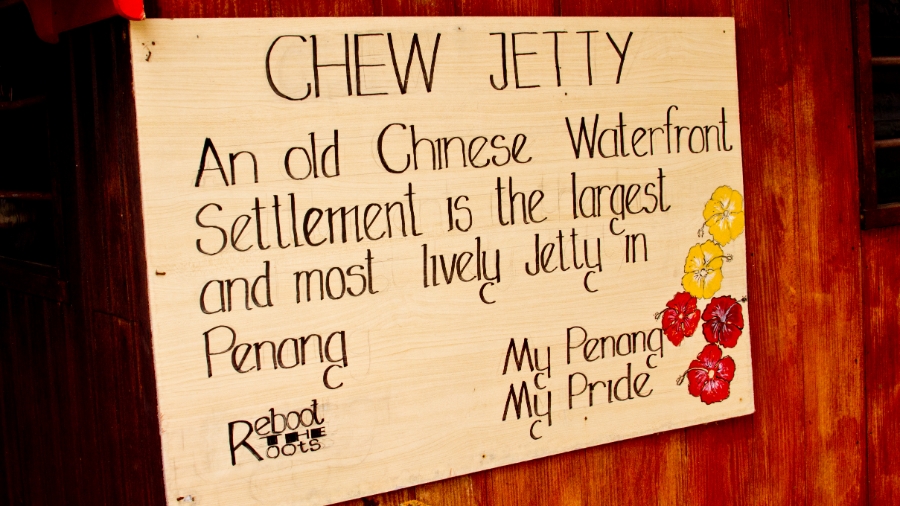 CHEW JETTY
An old Chinese Waterfront
Settlement is the largest
and most lively Jetty in
Penang
My Penang
My Pride
Reboot
THE
Roots